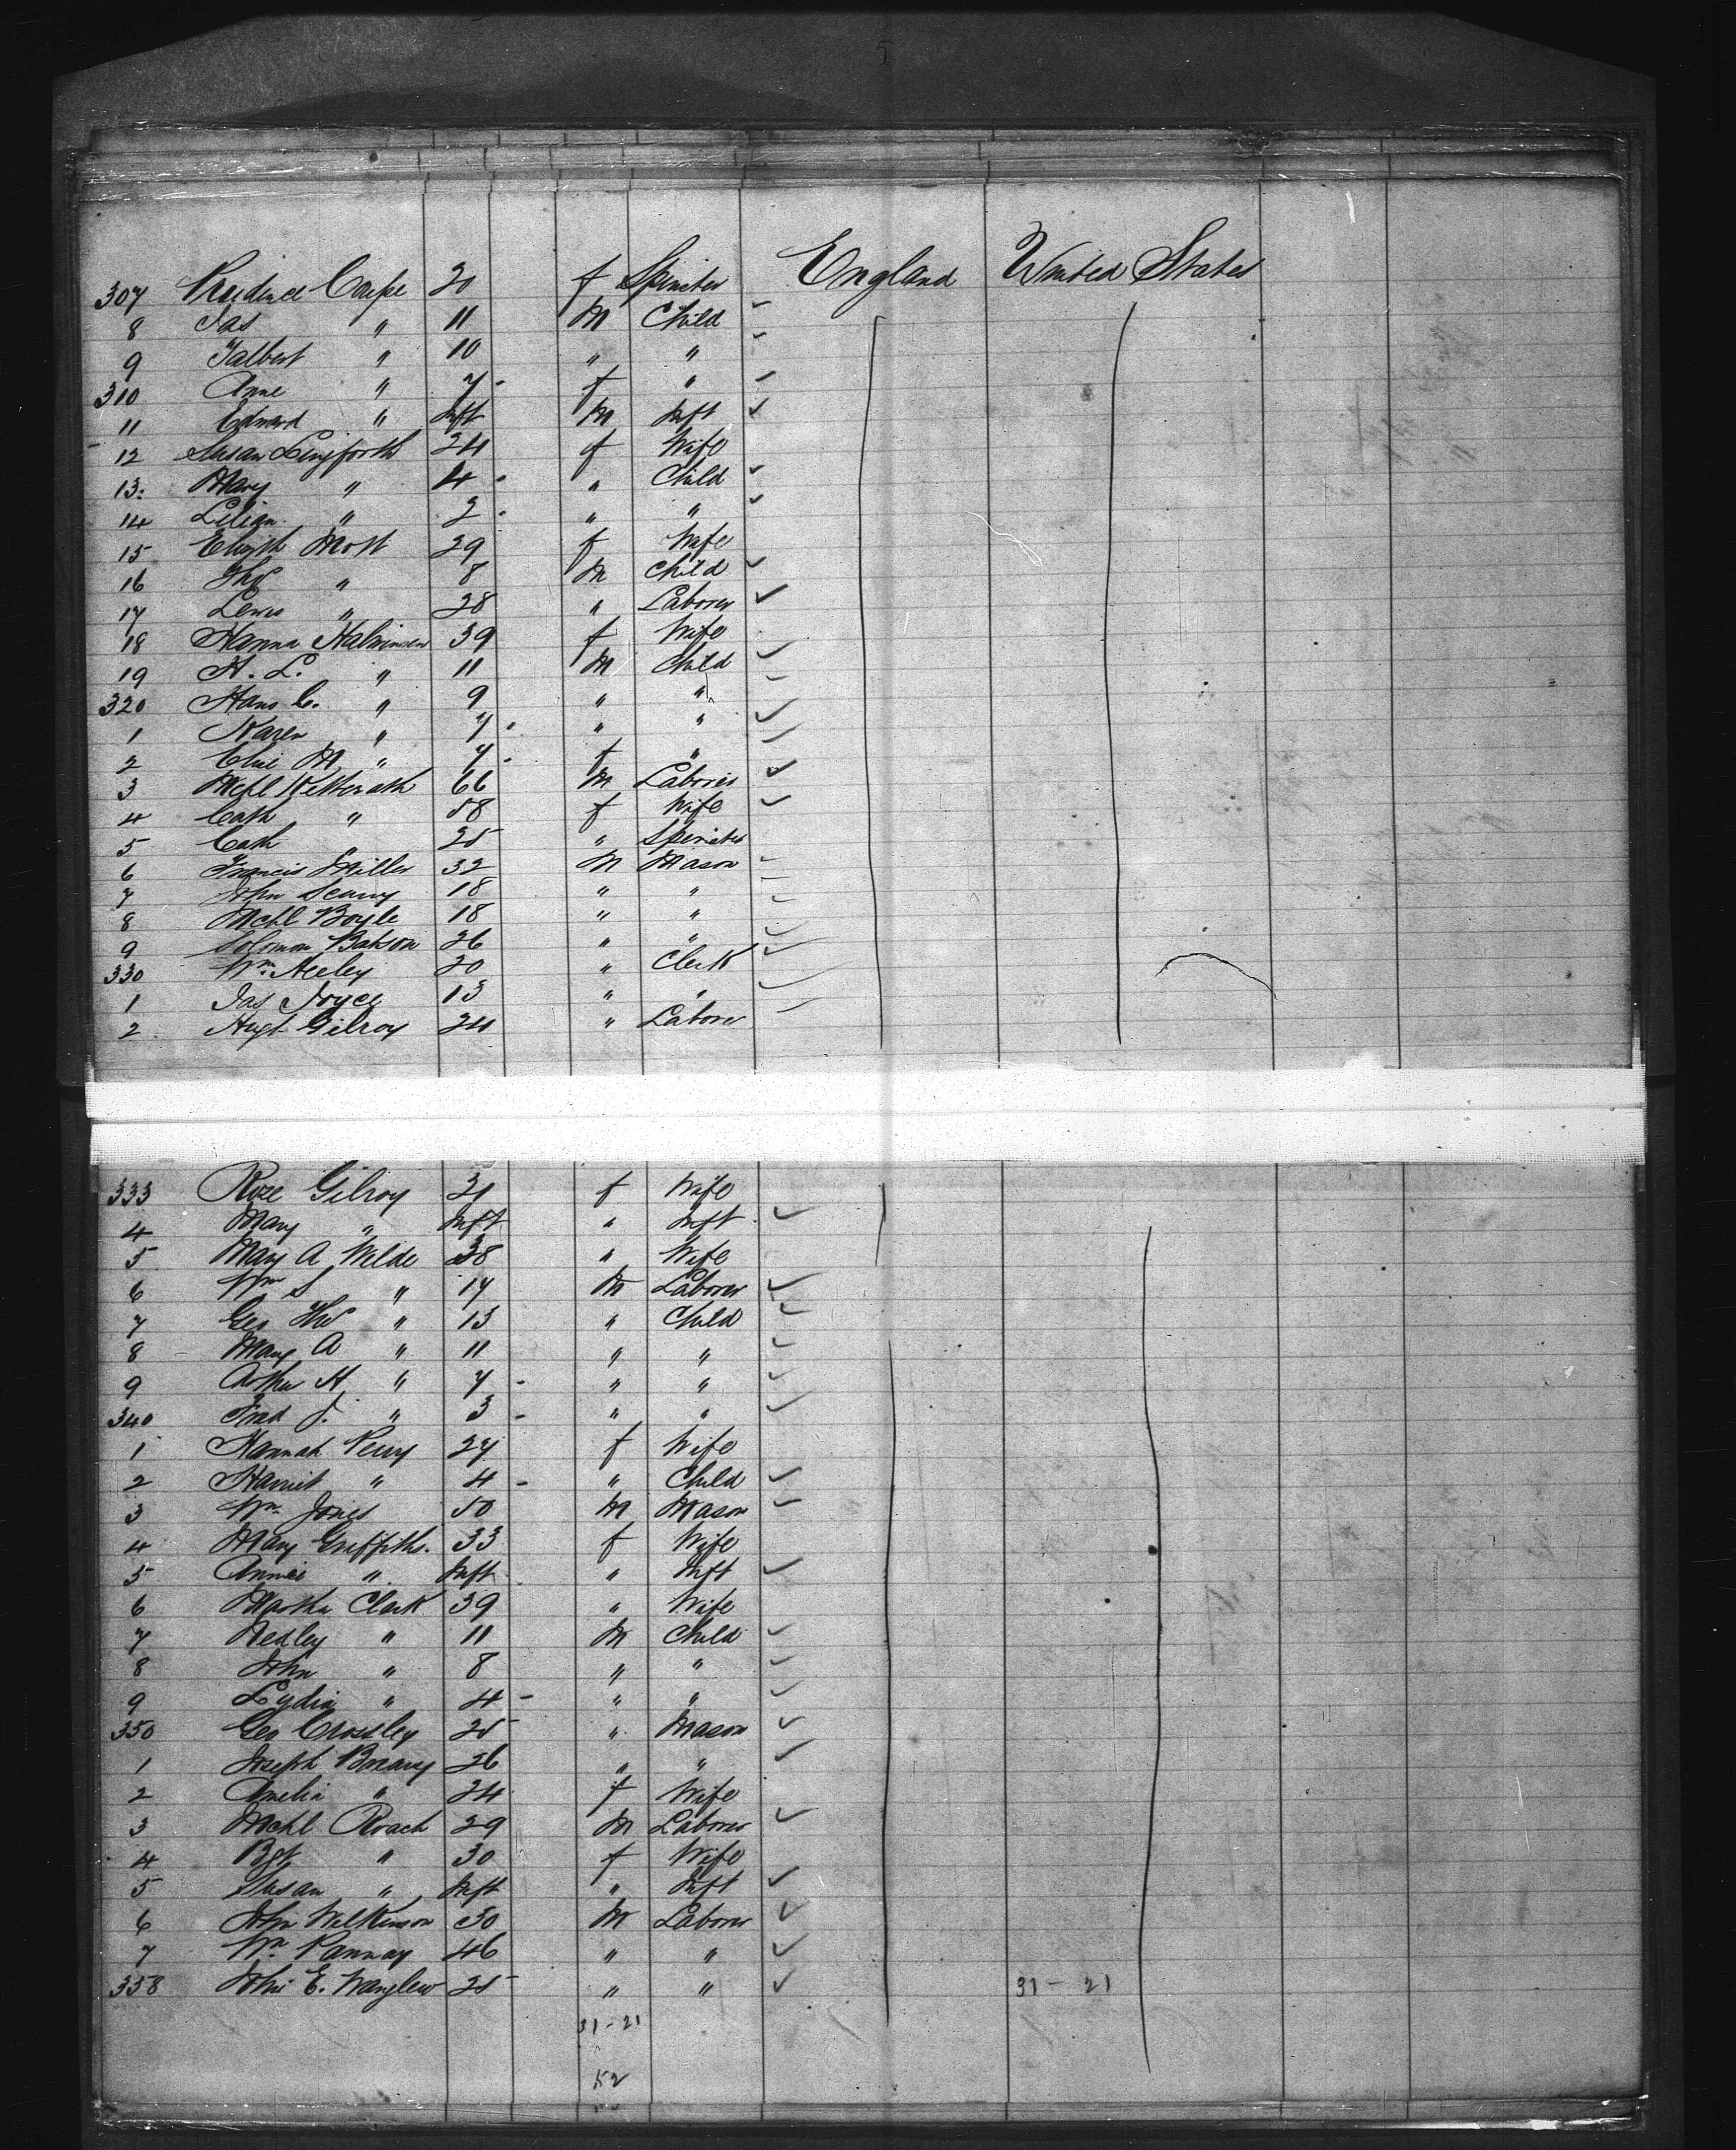 307 Prudence Coupe 20 f Spinster England United States
8 Jas " 11 M Child
9 Talbert " 10 " "
310 Anne " 7 - f "
11 Edward " Inft M Inft
12 Susan Lingforth 24 f Wife
13 Mary " 4 - " Child
14 Lilian " 2 - " "
15 Elizth Mott 29 f Wife
16 Thos " 8 M Child
17 Lewis " 28 " Laborer
18 Hanna Halvinsen 39 f Wife
19 H. L. " 11 M Child
320 Hans C. " 9 " "
1 Karen " 7 - " "
2 Elise M " 7 - f "
3 Mchl 66 M Laborer
4 Cath " 58 f Wife
5 Cath " 25 " Spinster
6 Francis Miller 32 M Mason
7 John 18 " "
8 Mchl Boyle 18 " "
9 Solomon Batson 26 " "
330 Wm Neeley 20 " Clerk
1 Jas Joyce 13 " "
2 Hugh Gilroy 24 " Laborer
333 Rose Gilroy 21 f Wife
4 Mary " Inft " Inft
5 Mary A Wilde 38 " Wife
6 Wm S " 14 M Laborer
7 Geo Thos " 13 " Child
8 Mary A " 11 " "
9 Arthur H " 7 - " "
340 Fred J. " 3 - " "
1 Hannah Perry 27 f Wife
2 Harriet " 4 - " Child
3 Wm Jones 50 M Mason
4 Mary Griffiths 33 f Wife
5 Annie " Inft " Inft
6 Martha Clark 39 " Wife
7 Hedley " 11 M Child
8 John " 8 " "
9 Lydia " 4 - " "
350 Geo Crossley 25 " Mason
1 Joseph 26 " "
2 Amelia " 24 f Wife
3 Mchl Roach 29 M Laborer
4 Bgt " 30 f Wife
5 Susan " Inft " Inft
6 John Wilkinson 30 M Laborer
7 Wm Pannay 46 " "
358 John E. 25 " " 31 - 21
31 - 21
52